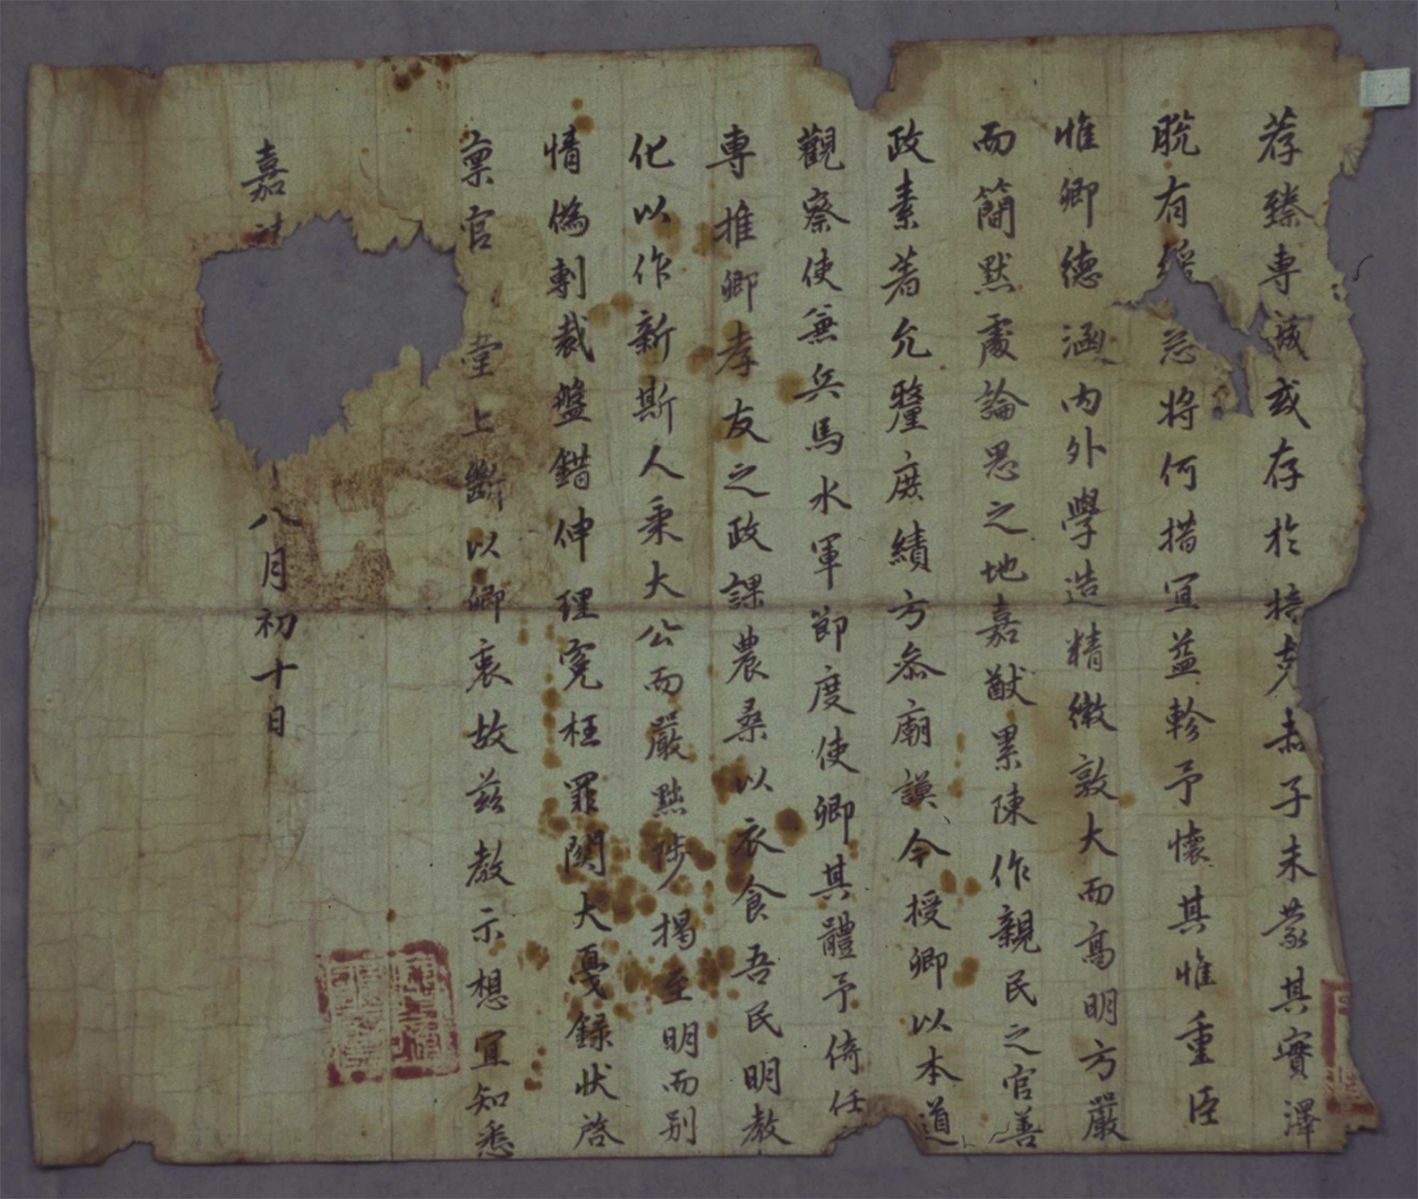 荐臻專誠或存於掊克赤子未蒙其實澤
脫有忿將何措宜益軫予懷其惟重臣
惟卿德涵內外學造精微敦大而高明方嚴
而簡默處論思之地嘉猷累陳作親民之官善
政素著允釐庶績方叅廟謨今授卿以本道
觀察使兼兵馬水軍節度使卿其體予倚任
專推卿孝友之政課農桑以衣食吾民明敎
化以作新斯人秉大公而嚴黜陟揭至明而別
情僞剸裁盤錯伸理冤枉罪関大戛錄狀啓
稟官堂上斷以卿裏故玆敎示想宜知悉
嘉八月初十日